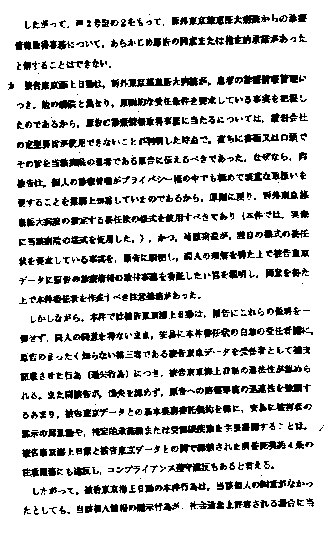 したがって、甲2号証の2をもって、訴外東京慈恵医大病院からの診療
情報取得事務について、あらかじめ原告の同意または推定的承諾があった
と解することはできない。
被告東京海上日動は、訴外東京慈恵医大病院が、患者の診療情報管理に
つき、他の病院と異なり、原則的な受任条件を要求している事実を把握し
たのであるから、原告の診療情報取得事務に当たるについては、被告会社
の定型書面が使用できないことが判明した時点で、直ちに書面又は口頭で
その旨を当該病院の患者である原告に伝えるべきであった。なぜなら、
被告は、個人の診療情報がプライバシー権の中でも極めて慎重な取扱いを
要することを業務上熟知しているのであるから、原則に戻り、訴外東京慈
恵医大病院の指定する委任状の様式を使用すべきであり
に当該病院の様式を使用した。)、かつ、
状を要求している事実を、原告に説明し、同人の理解を得た上で被告東京
データに原告の診療情報の取付事務を委託したい旨を説明し、同意を得た
上で本件委任状を作成すべき注意義務があった。
しかしながら、本件では被告東京海上日動は、原告にこれらの説明を一
切せず、同人の同意を得ないまま、安易に本件委任状の白地の受任者欄に、
原告のまったく知らない第三者である被告東京データを受任者として補充
記載させた行為(過失行為)につき、被告東京海上日動の違法性が認めら
れる。また同被告が、過失を認めず、原告への
るあまり、被告東京データとの基本業務委託契約を楯に、安易に
示の周知や、推定的承諾論または受領権授与を主張することは、
被告東京海上日動と被告東京データとの間で締結された業務委託契約4条の
注意義務にも違反し、コンプライアンス遵守違反もあると言える。
したがって、被告東京海上日動の本件行為は、当該個人の同意がなかっ
たとしても、当該個人情報の開示行為が、社会通念上許容される場合に当